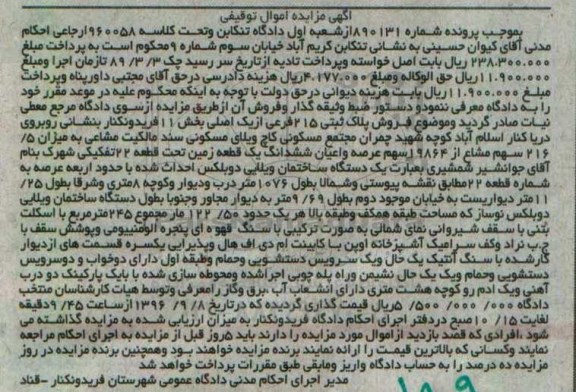 آگهی مزایده اموال توقیفی
بموجب پرونده شماره ۸۹۰۱۳۱ ازشعبه اول دادگاه تنکابن وتحت کلاسه ۹۶۰۰۵۸ ارجاعی احکام
مدنی آقای کیوان حسینی به نشانی تنکابن کریم آباد خیابان سوم شماره ۹ محکوم است به پرداخت مبلغ
۲۳۸.۳۰۰.۰۰۰ ریال بابت اصل خواسته وپرداخت تادیه ازتاریخ سر رسید چک ۸۹/۳/۳ تازمان اجرا ومبلغ
۱۱.۹۰۰.۰۰۰ ریال حق الوکاله ومبلغ ۴.۱۷۷.۰۰۰ ریال هزینه دادرسی درحق آقای مجتبی داورپناه وپرداخت
مبلغ ۱۱.۹۰۰.۰۰۰ ریال بابت هزینه دیوانی درحق دولت با توجه به اینکه محکوم علیه در موعد مقرر خود
را به دادگاه معرفی ننمودو دستور ضبط وثیقه گذار وفروش آن ازطریق مزایده ازسوی دادگاه مرجع معطی
نیات صادر گردید وموضوع فروش پلاک ثبتی ۲۱۵ فرعی ازیک اصلی بخش ۱۱ فریدونکنار بنشانی روبروی
دریا کنار اسلام آباد کوچه شهید چمران مجتمع مسکونی کاج ویلای مسکونی سند مالکیت مشاعی به میزان ۵/
۲۱۶ سهم مشاع از ۹۸۶۴ سهم عرصه واعیان ششدانگ یک قطعه زمین تحت قطعه ۲۲ تفکیکی شهرک بنام
آقای جوانشیر شمشیری بعبارت یک دستگاه ساختمان ویلایی دوبلکس احداث شده با حدود اربعه عرصه به
شماره قطعه ۲۲ مطابق نقشه پیوستی وشمالا بطول ۱۰/۷۶ متر درب ودیوار وکوچه ۸ متری وشرقا بطول ۲۵/
۱۱ متر دیواریست به خیابان موجود دوم بطول ۹/۶۹ متر به دیوار مجاور وجنوبا بطول دستگاه ساختمان ویلایی
دوبلکس نوساز که مساحت طبقه همکف وطبقه بالا هر یک حدود ۱۲۲/۵۰ مار مجموع ۲۴۵ مترمربع با اسکلت
بتنی با سقف شیروانی نمای شمالی به صورت ترکیبی با سنگ قهوه ای پنجره الومینیومی وپوشش سقف با
چ.ب نراد وکف سرامیک آشپزخانه اوپن با کابینت ام دی اف هال وپذیرایی یکسره قسمت های ازدیوار
کارشده با سنگ آنتیک یک حال ویک سرویس دستشویی وحمام وطبقه اول دارای دوخواب و دوسرویس
دستشویی وحمام ویک یک حال نشیمن وراه پله چوبی اجراشده ومحوطه سازی شده با بایک پارکینگ دو درب
آهنی ویک ادم رو کوچه هشت متری دارای انشعاب آب .برق وگاز رامعرفی وتوسط هیات کارشناسان منتخب
دادگاه ۵/۵۰۰/۰۰۰/۰۰۰ ریال قیمت گذاری گردیده که درتاریخ ۱۳۹۶/۹/۸ ازساعت ۹/۴۵ دقیقه
لغایت ۱۰/۱۵ صبح دردفتر اجرای احکام دادگاه فریدونکنار به میزان ارزیابی شده به مزایده گذاشته می
شود .افرادی که قصد بازدید ازاموال مورد مزایده را دارند باید ۵ روز قبل از مزایده به اجرای احکام مراجعه
نمایند وکسانی که بالاترین قیمت را ارائه نمایند برنده مزایده خواهند بود وهمچنین برنده مزایده در روز
مزایده ده درصد را به حساب دادگاه واریز ومابقی طبق مقررات پرداخت خواهد شد
مدیر اجرای احکام مدنی دادگاه عمومی شهرستان فریدونکنار -قناد